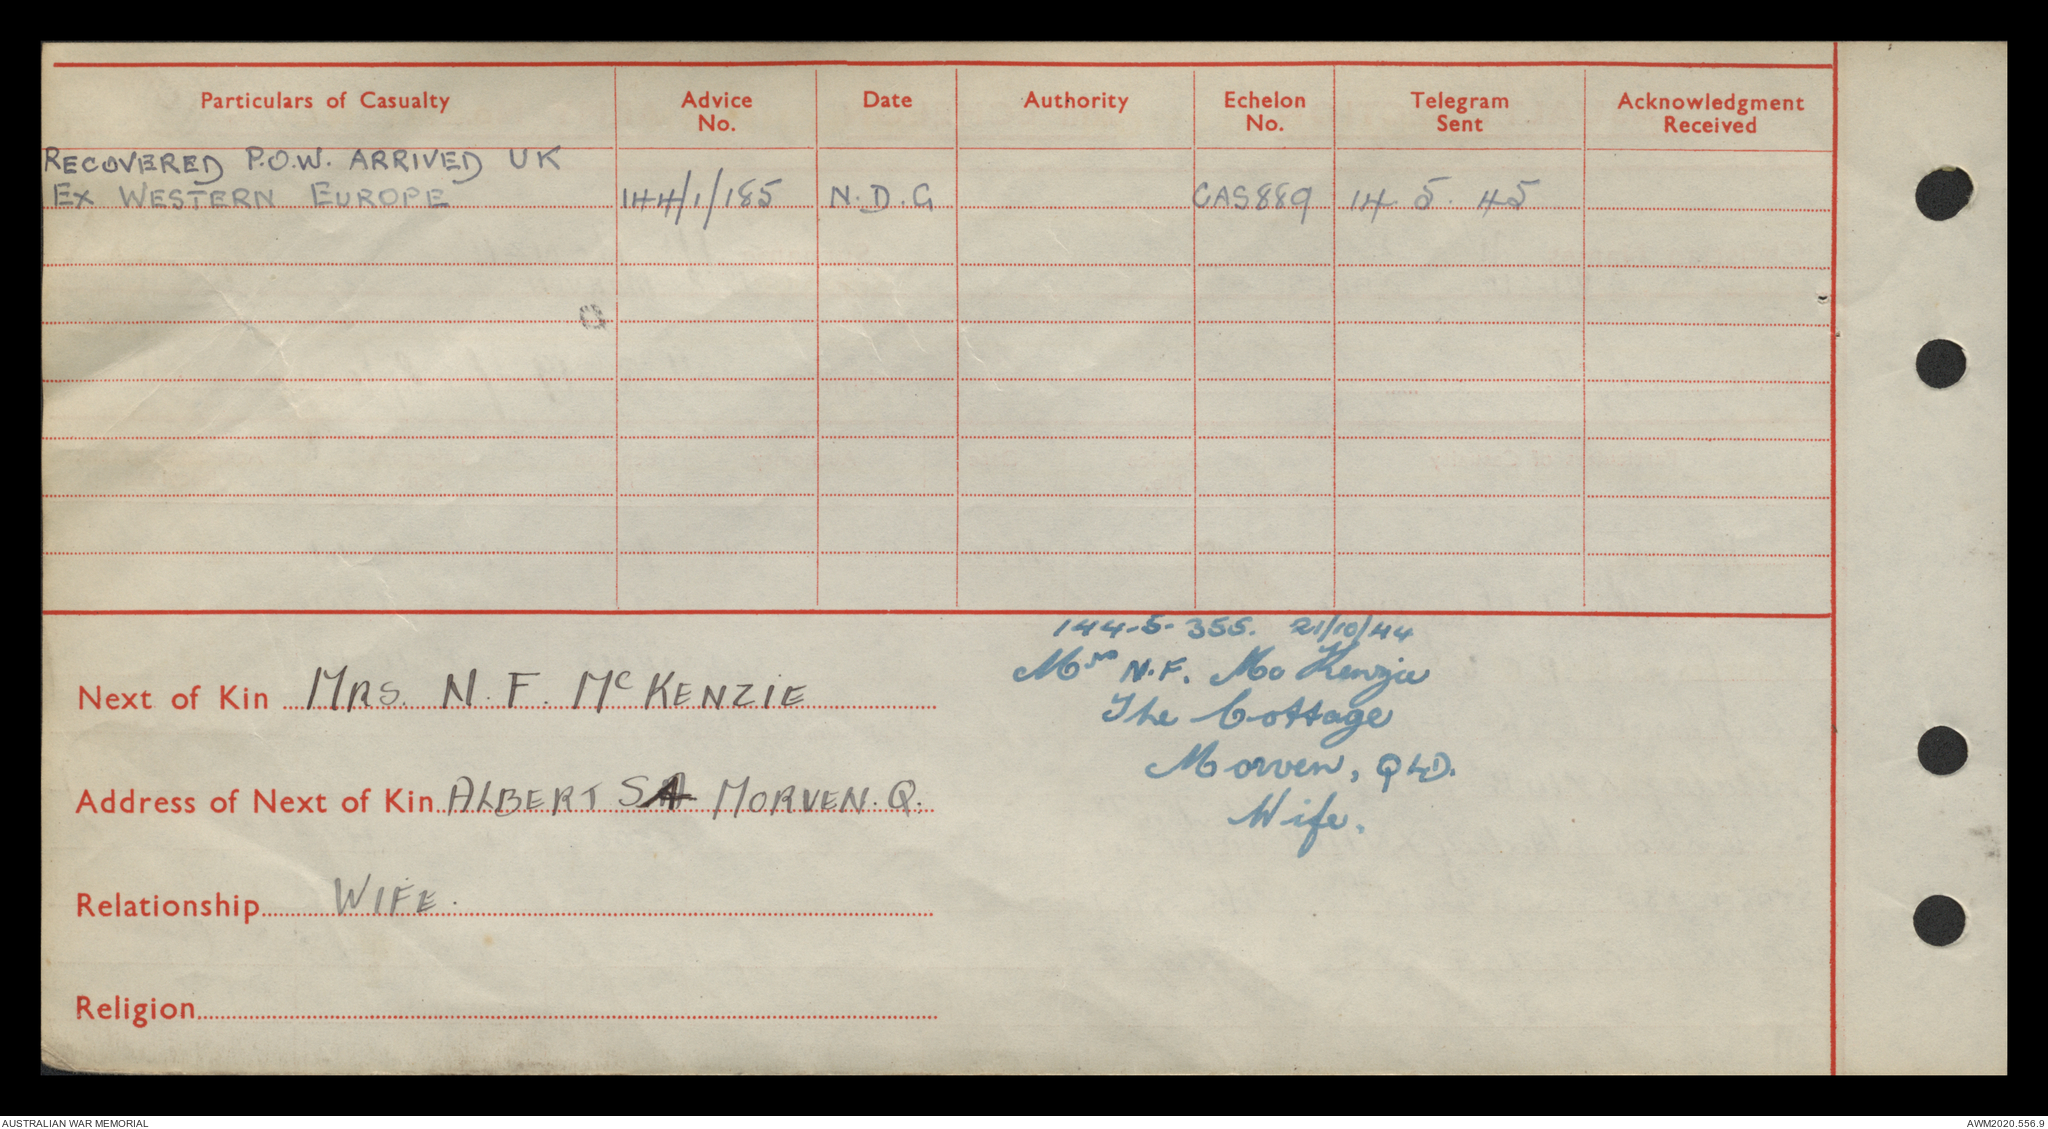 Particulars of Casualty Advice No. Date Authority Echelon No. Telegram Sent Acknowledgment Received
RECOVERED P.O.W. ARRIVED UK
EX WESTERN EUROPE 144/1/185 N.D.G CAS889 14. 5. 45
144-5-355. 21/10/44
Mrs N.F. McKenzie
The Cottage
Morven, QLD.
Wife.
Next of Kin MRS. N. F. McKENZIE
Address of Next of Kin ALBERT ST MORVEN. Q.
Relationship WIFE.
Religion
AUSTRALIAN WAR MEMORIAL
AWM2020.556.9